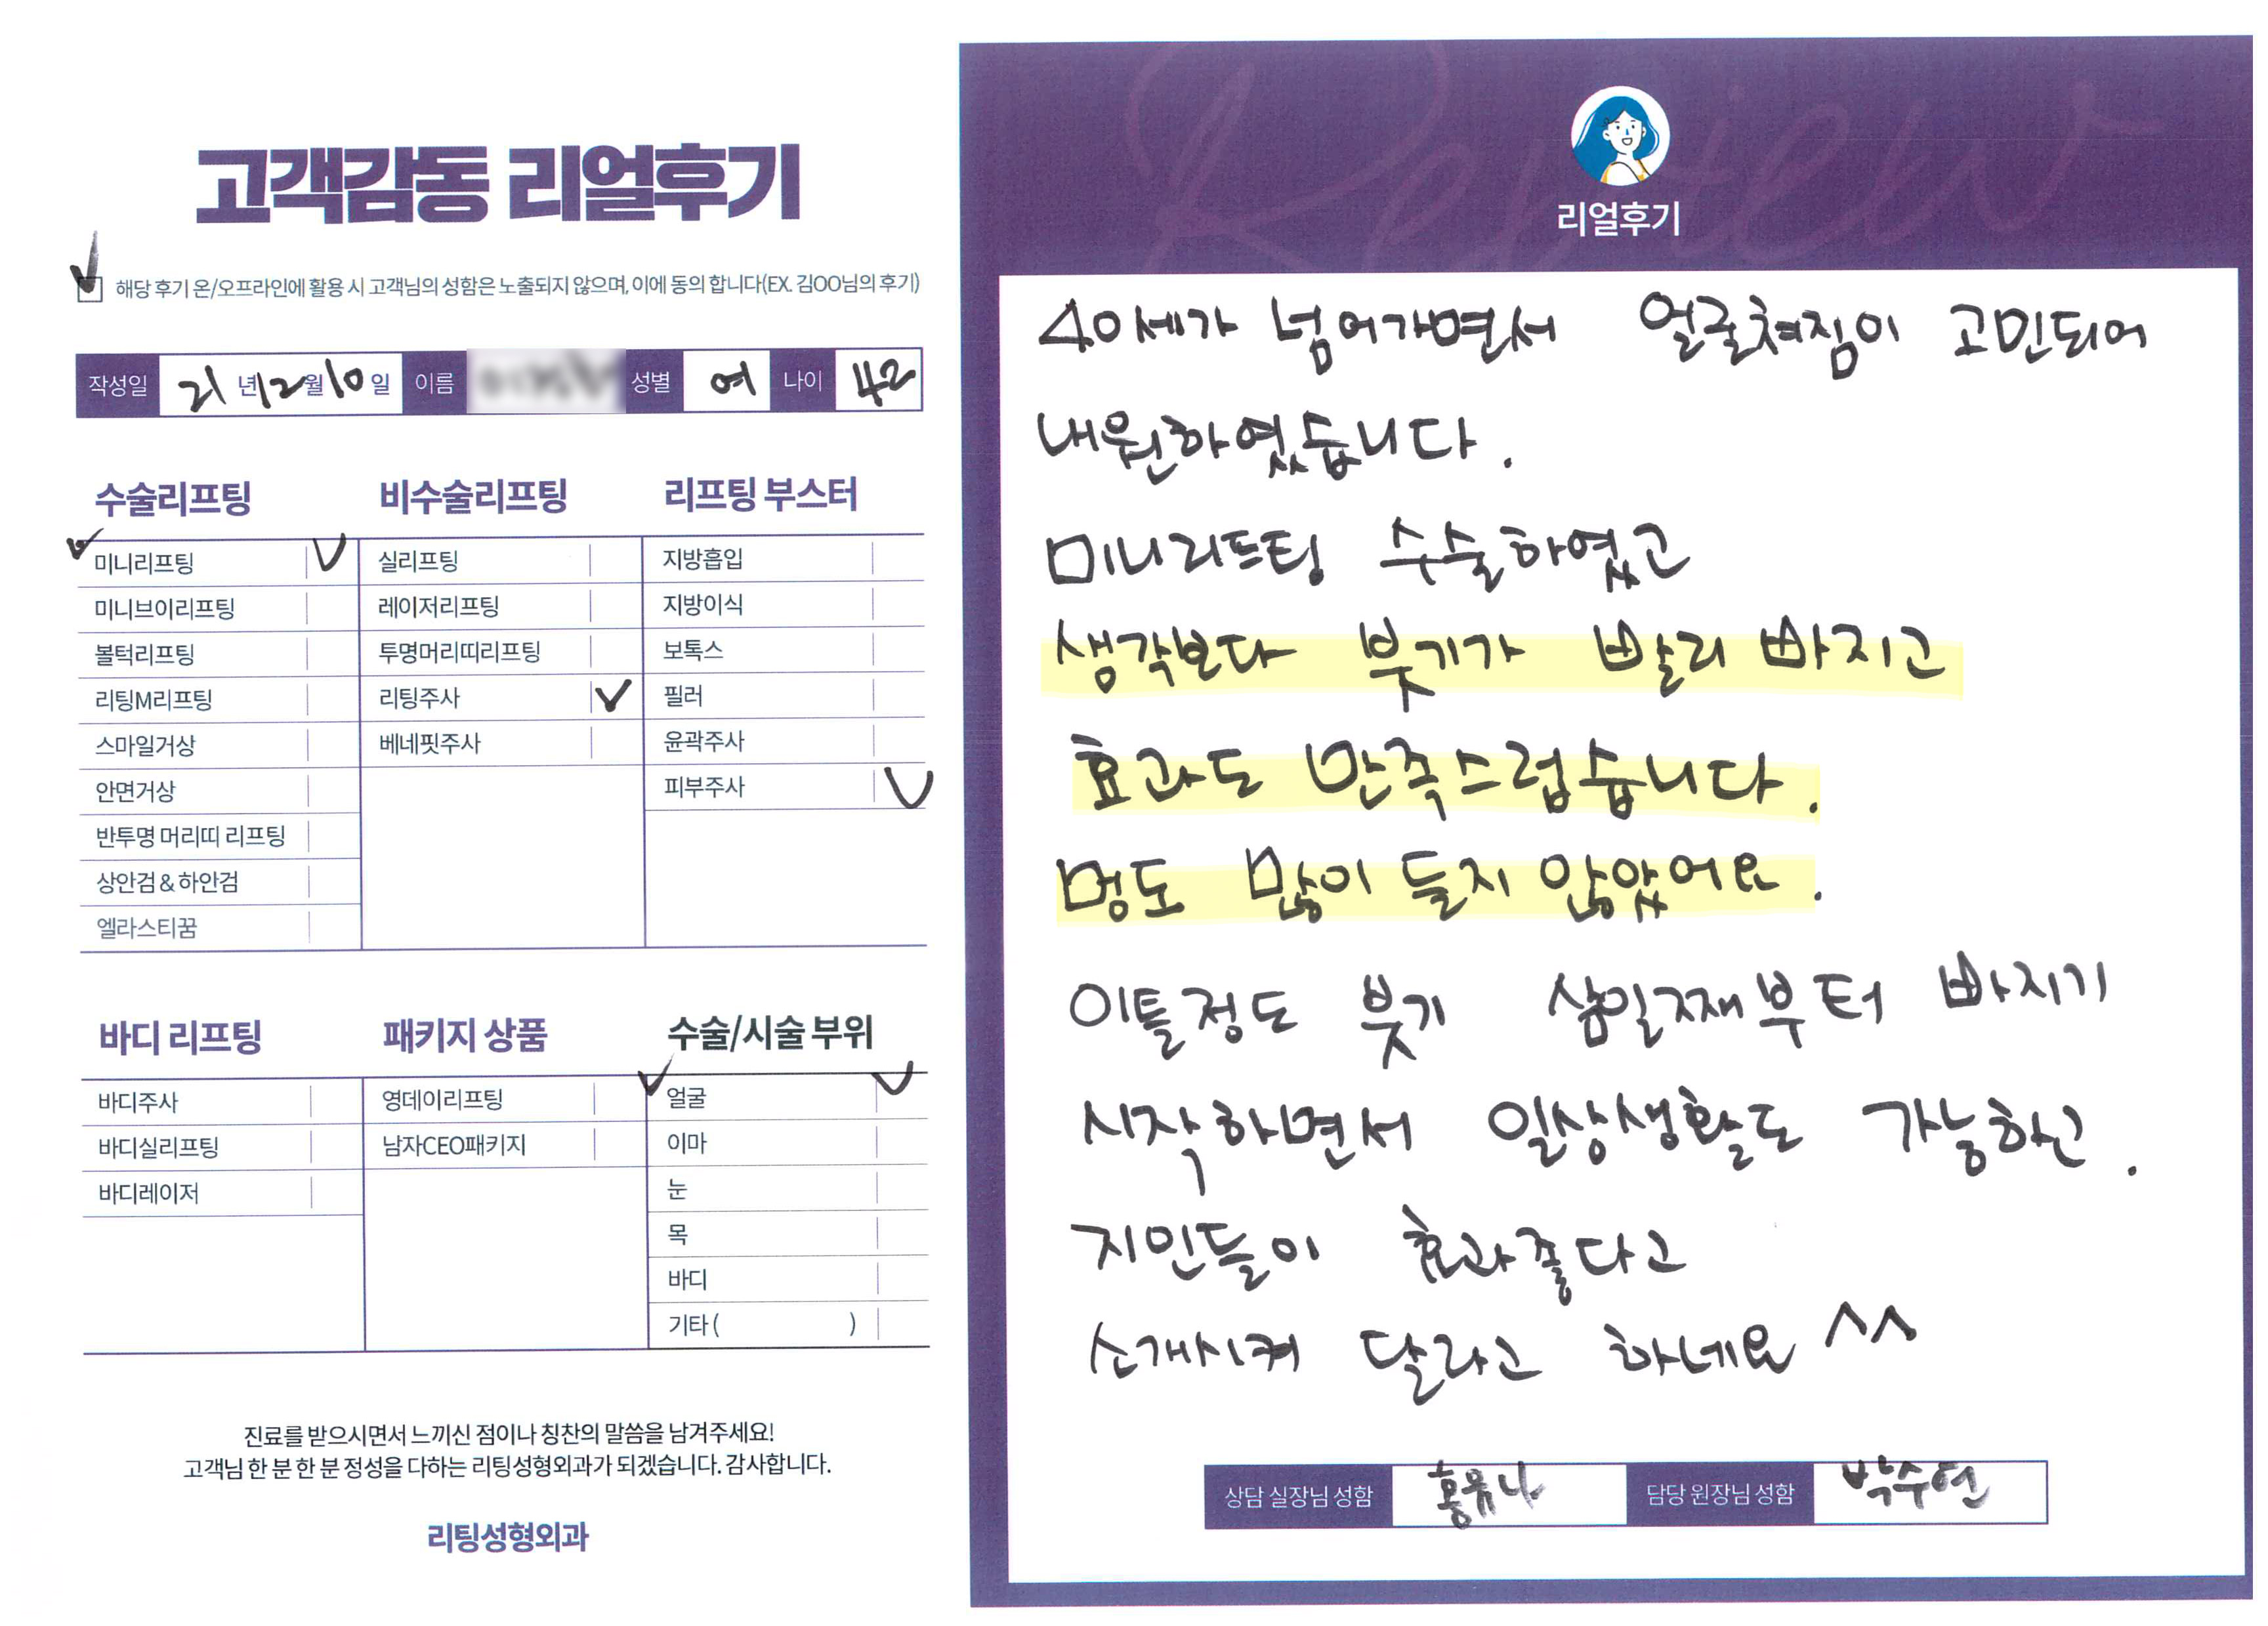 고객감동 리얼후기
✓ 해당 후기 온/오프라인에 활용 시 고객님의 성함은 노출되지 않으며, 이에 동의 합니다(EX. 김OO님의 후기)
작성일 21년 12월 10일 이름 성별 여 나이 42
수술리프팅
✓ 미니리프팅 ✓
미니브이리프팅
볼턱리프팅
리팅M리프팅
스마일거상
안면거상
반투명 머리띠 리프팅
상안검 & 하안검
엘라스티꿈
비수술리프팅
실리프팅
레이저리프팅
투명머리띠리프팅
리팅주사 ✓
베네핏주사
리프팅 부스터
지방흡입
지방이식
보톡스
필러
윤곽주사
피부주사 ✓
바디 리프팅
바디주사
바디실리프팅
바디레이저
패키지 상품
영데이리프팅
남자CEO패키지
수술/시술 부위
✓ 얼굴 ✓
이마
눈
목
바디
기타 ( )
진료를 받으시면서 느끼신 점이나 칭찬의 말씀을 남겨주세요!
고객님 한 분 한 분 정성을 다하는 리팅성형외과가 되겠습니다. 감사합니다.
리팅성형외과
Review
리얼후기
40세가 넘어가면서 얼굴쳐짐이 고민되어
내원하였습니다.
미니리프팅 수술하였고
생각보다 붓기가 빨리 빠지고
효과도 만족스럽습니다.
멍도 많이 들지 않았어요.
이틀정도 붓기 삼일째부터 빠지기
시작하면서 일상생활도 가능하고.
지인들이 효과좋다고
소개시켜 달라고 하네요 ^^
상담 실장님 성함 홍유나 담당 원장님 성함 박수연